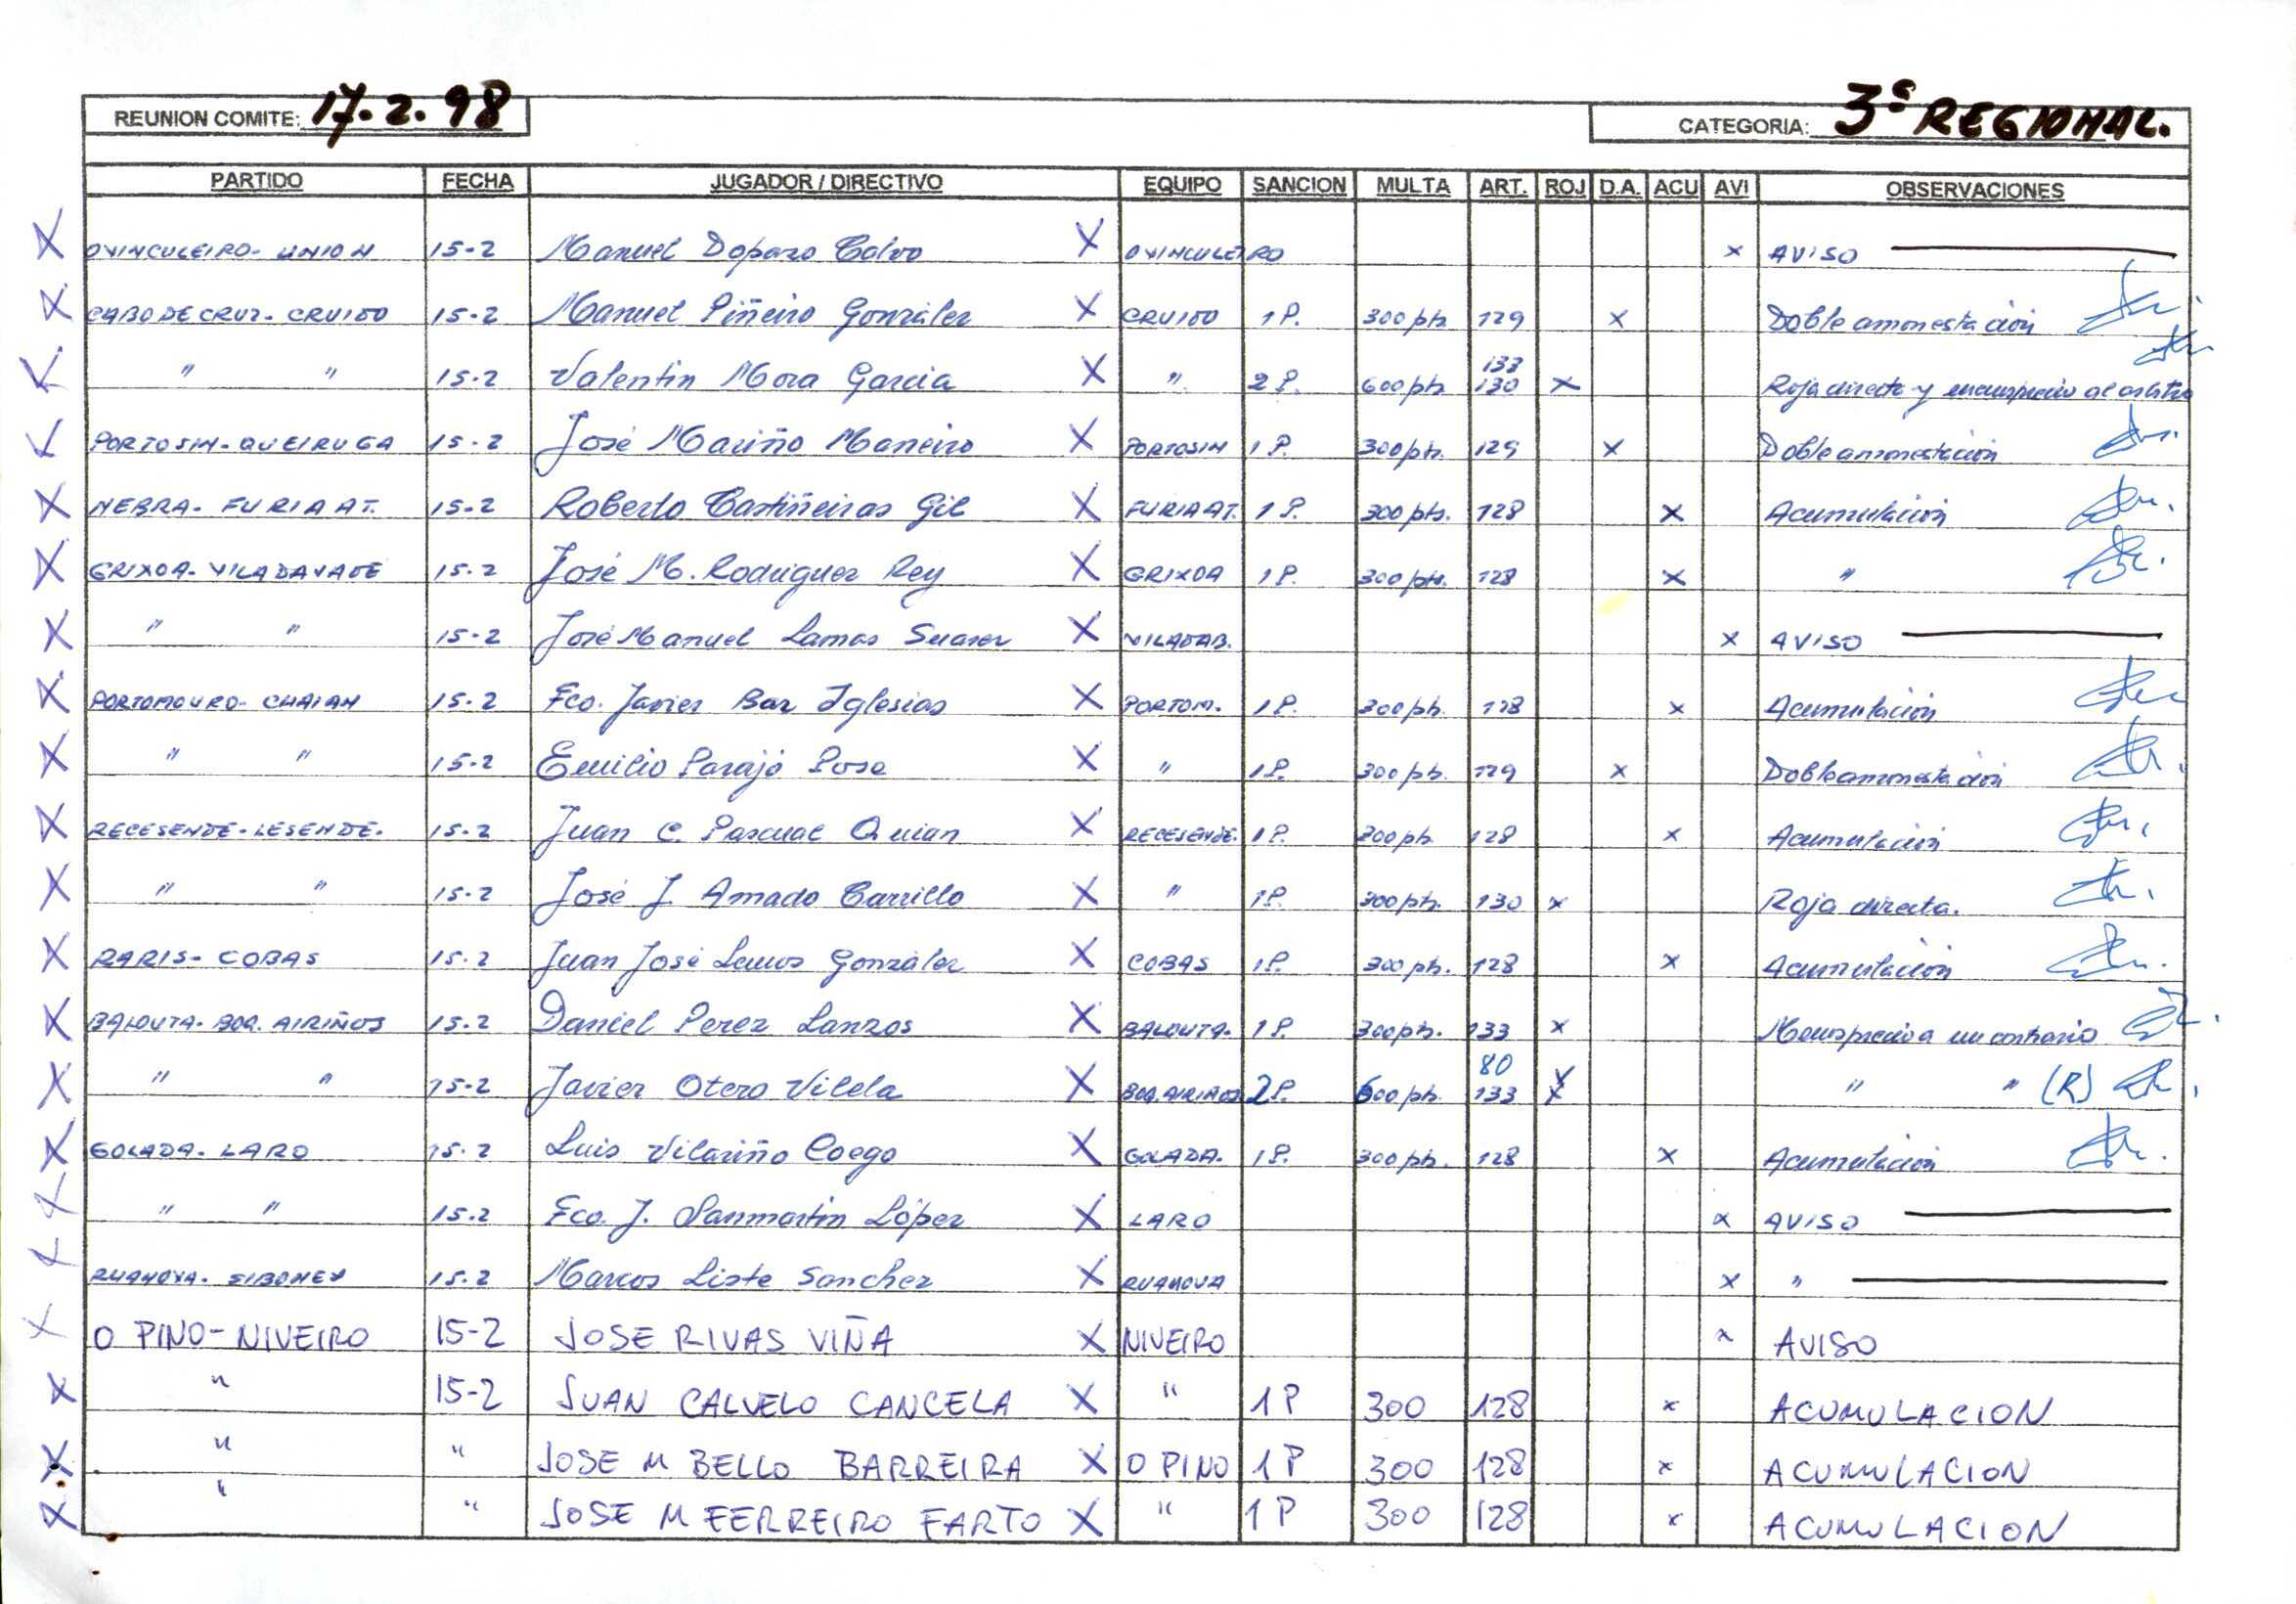 REUNION COMITE: 17.2.98 CATEGORIA: 3ª REGIONAL.
PARTIDO FECHA JUGADOR / DIRECTIVO EQUIPO SANCION MULTA ART. ROJ D.A. ACU AVI OBSERVACIONES
X OVINCULEIRO - UNION 15-2 Manuel Dopazo Calvo X OVINCULEIRO x AVISO
X CABO DE CRUZ - CRUIDO 15-2 Manuel Piñeiro González X CRUIDO 1 P. 300 pts. 129 x Doble amonestación
X " " 15-2 Valentin Mora Garcia X " 2 P. 600 pts. 133 130 x Roja directa y menosprecio al arbitro
X PORTOSIN - QUEIRUGA 15-2 José Mariño Maneiro X PORTOSIN 1 P. 300 pts. 129 x Doble amonestación
X NEBRA - FURIA AT. 15-2 Roberto Castiñeiras Gil X FURIA AT. 1 P. 300 pts. 128 x Acumulación
X GRIXOA - VILADAVADE 15-2 José M. Rodriguez Rey X GRIXOA 1 P. 300 pts. 128 x "
X " " 15-2 José Manuel Lamas Suarez X VILADAB. x AVISO
X PORTOMOURO - CHAIAN 15-2 Fco. Javier Bar Iglesias X PORTOM. 1 P. 300 pts. 128 x Acumulación
X " " 15-2 Emilio Parajó Pose X " 1 P. 300 pts. 129 x Doble amonestación
X RECESENDE - LESENDE. 15-2 Juan C. Pascual Quian X RECESENDE. 1 P. 300 pts 128 x Acumulación
X " " 15-2 José J. Amado Carrillo X " 1 P. 300 pts. 130 x Roja directa.
X RARIS - COBAS 15-2 Juan José Lemos González X COBAS 1 P. 300 pts. 128 x Acumulación
X BALOUTA - BOQ. AIRIÑOS 15-2 Daniel Perez Lanzos X BALOUTA. 1 P. 300 pts. 133 x Menosprecio a un contrario
X " " 15-2 Javier Otero Vilela X BOQ. AIRIÑOS 2 P. 600 pts. 80 133 x " " (R)
X GOLADA - LARO 15-2 Luis Vilariño Coego X GOLADA. 1 P. 300 pts. 128 x Acumulación
X " " 15-2 Fco. J. Sanmartin López X LARO x AVISO
X RUANOVA - SIBONEY 15-2 Marcos Liste Sanchez X RUANOVA x "
X O PINO - NIVEIRO 15-2 JOSE RIVAS VIÑA X NIVEIRO x AVISO
X " 15-2 JUAN CALVELO CANCELA X " 1 P 300 128 x ACUMULACION
X " " JOSE M BELLO BARREIRA X O PINO 1 P 300 128 x ACUMULACION
X " " JOSE M FERREIRO FARTO X " 1 P 300 128 x ACUMULACION